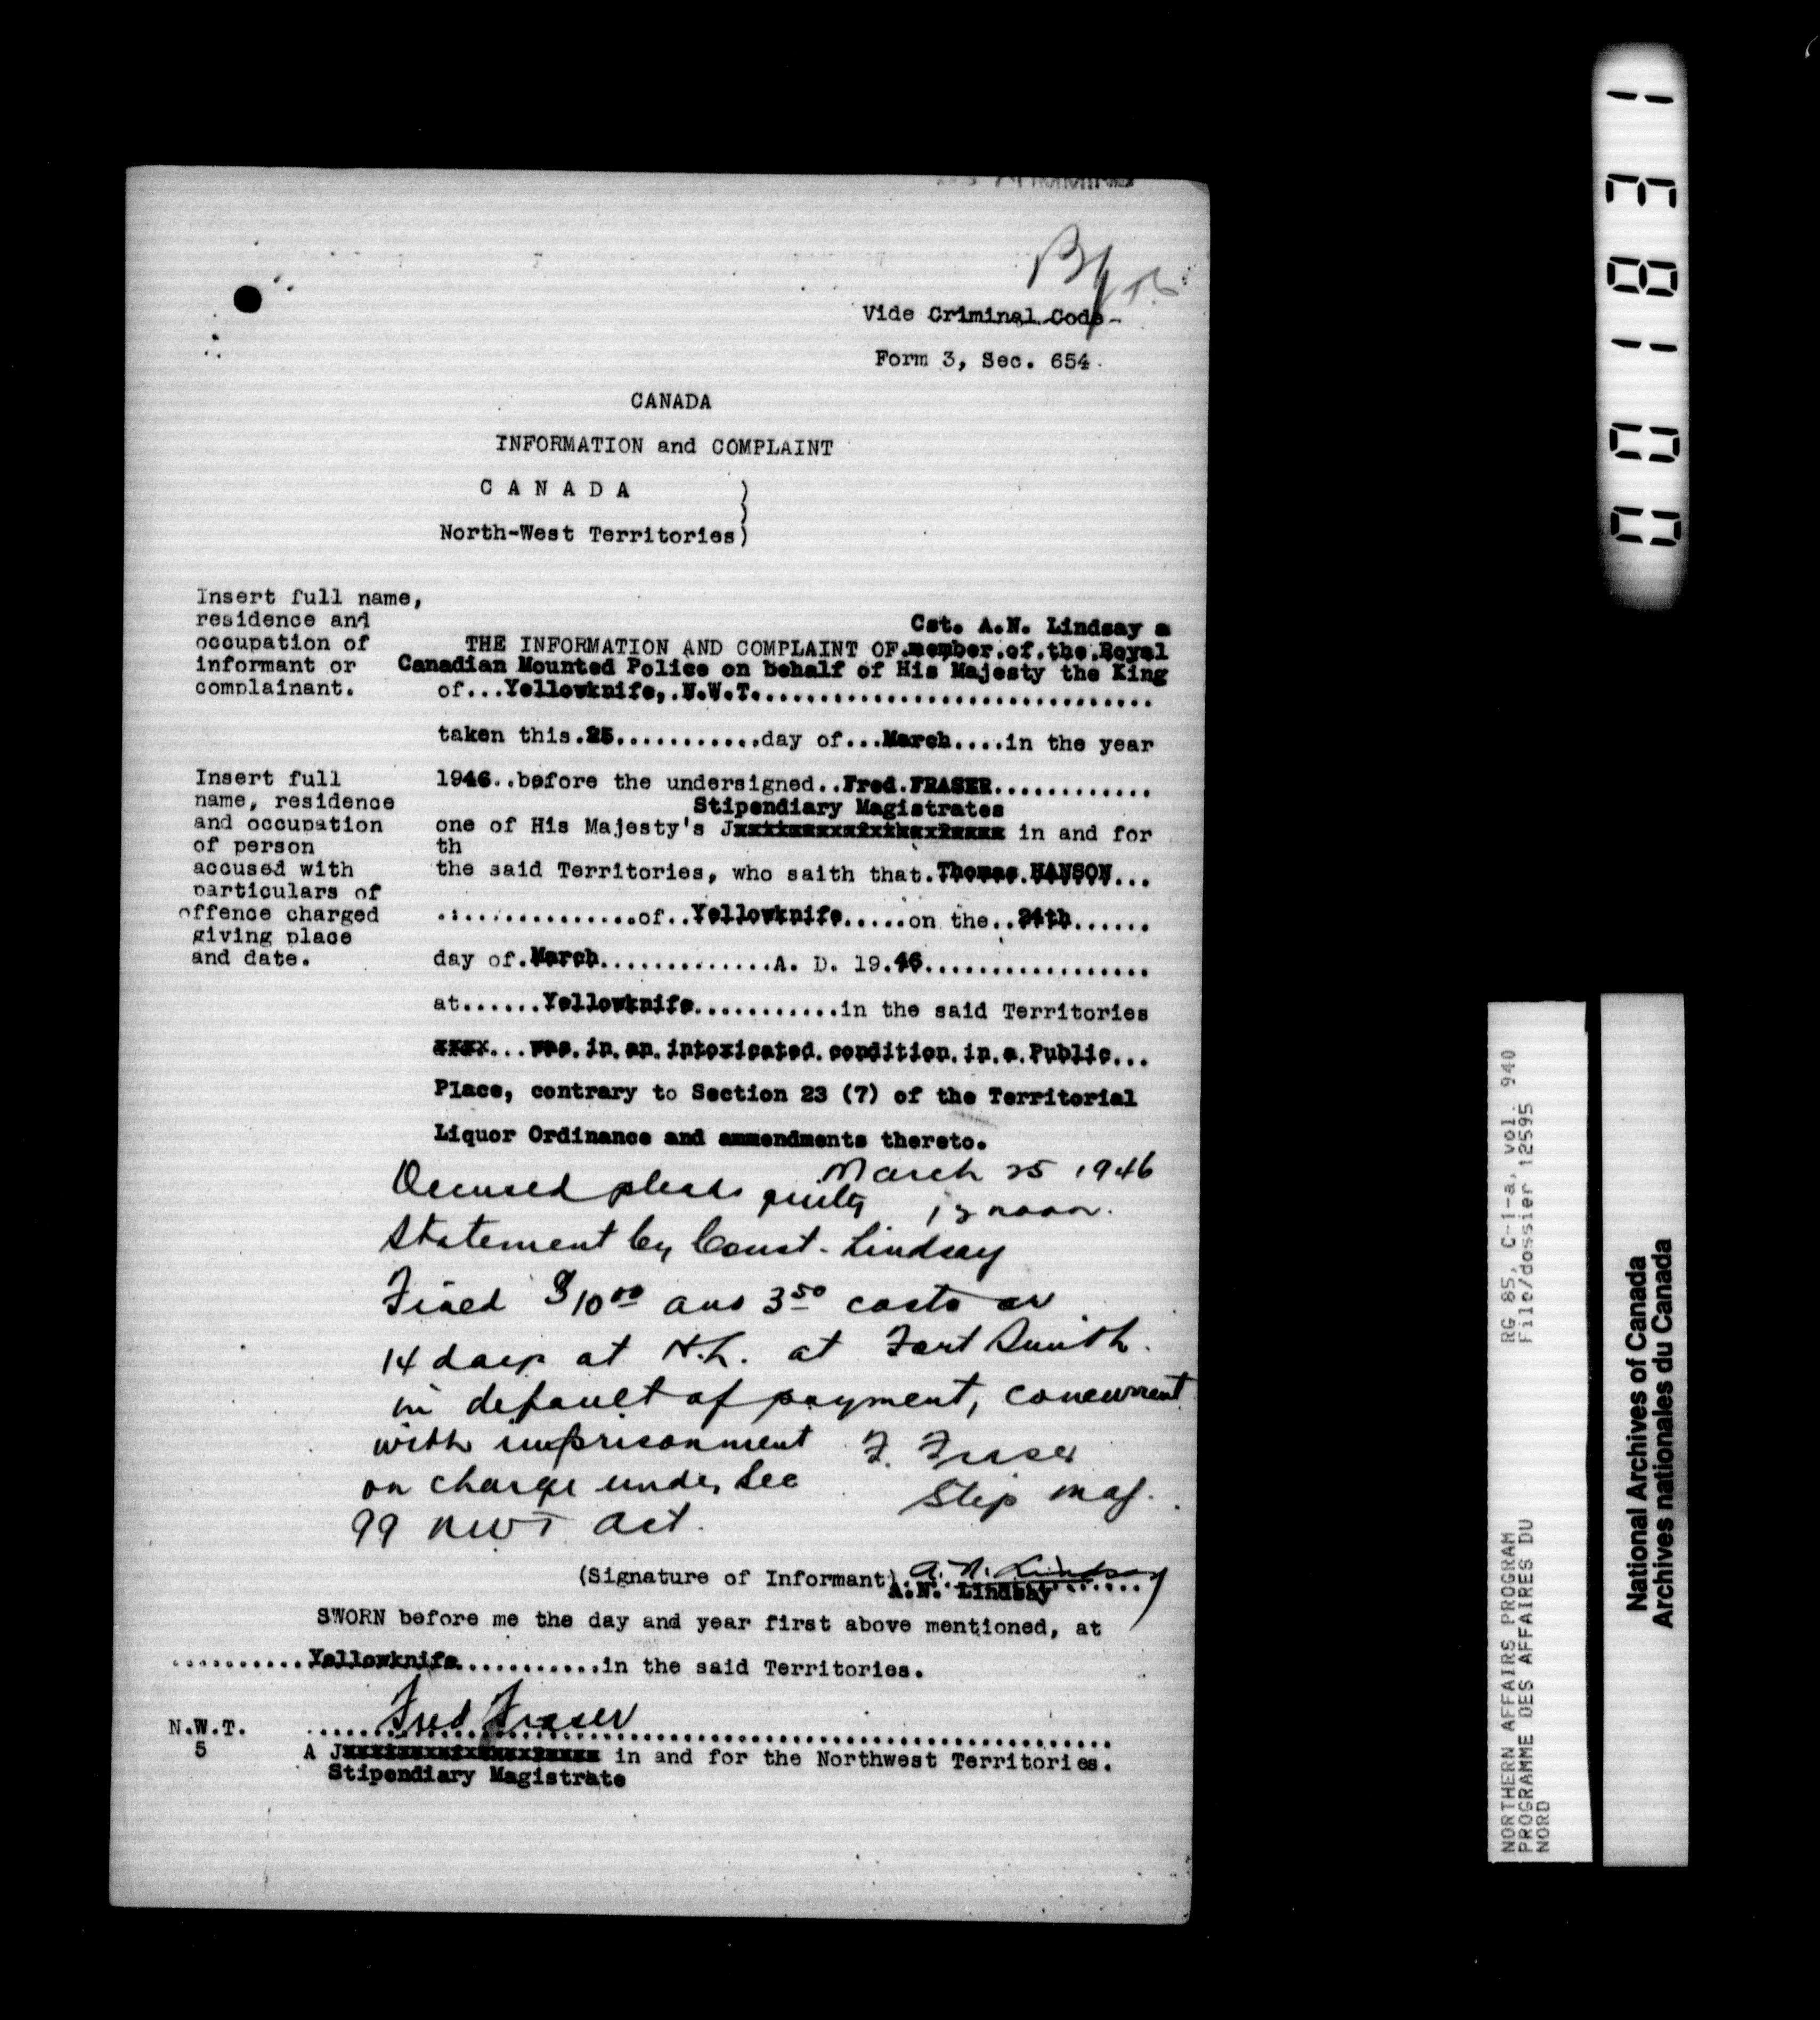 Vide Criminal Code
Form 3, Sec. 654.
CANADA
INFORMATION and COMPLAINT
C A N A D A )
)
North-West Territories)
Insert full name,
residence and
occupation of
informant or
complainant.
Cst. A.N. Lindsay a
THE INFORMATION AND COMPLAINT OF.member.of.the.Royal
Canadian Mounted Police on behalf of His Majesty the King
of...Yellowknife,.N.W.T..............................
taken this.25...........day of...March....in the year
Insert full
name, residence
and occupation
of person
accused with
particulars of
offence charged
giving place
and date.
1946..before the undersigned..Fred.FRASER............
Stipendiary Magistrates
one of His Majesty's J in and for
th
the said Territories, who saith that.Thomas.HANSON...
................of..Yellowknife.....on the..24th......
day of.March.............A. D. 19.46.................
at......Yellowknife...........in the said Territories
xxxx...was.in.an.intoxicated.condition.in.a.Public...
Place, contrary to Section 23 (7) of the Territorial
Liquor Ordinance and ammendments thereto.
March 25 1946
Accused pleads guilty 12 noon.
Statement by Const. Lindsay
Fined $10.00 and 3.50 costs or
14 days at H.L. at Fort Smith.
in default of payment, concurrent
with imprisonment F. Fraser
on charge under Sec Stip Mag.
99 NWT Act.
(Signature of Informant) A. N. Lindsay
A.N. Lindsay
SWORN before me the day and year first above mentioned, at
..........Yellowknife...........in the said Territories.
Fred Fraser
N.W.T.
5
A J in and for the Northwest Territories.
Stipendiary Magistrate
001831
RG 85, C-1-a, vol. 940
File/dossier 12595
NORTHERN AFFAIRS PROGRAM
PROGRAMME DES AFFAIRES DU
NORD
National Archives of Canada
Archives nationales du Canada